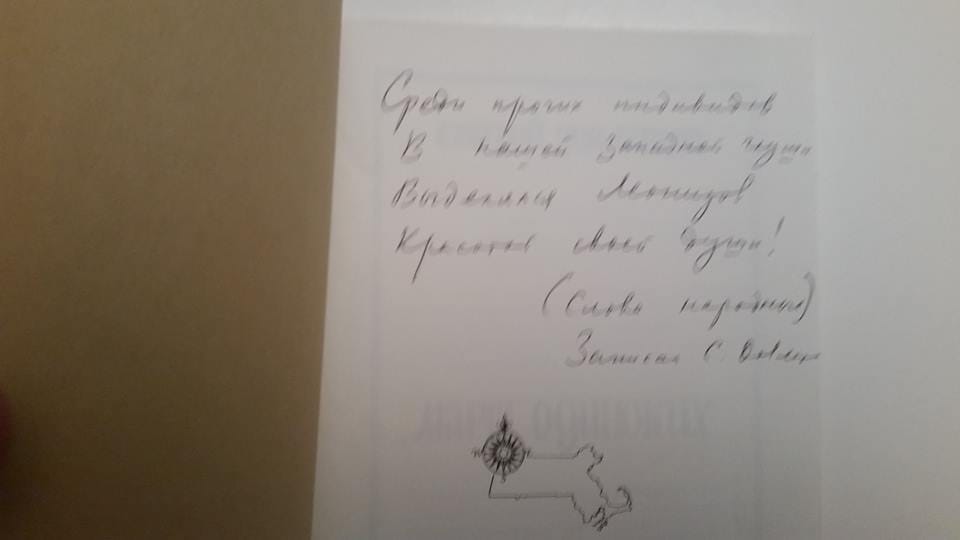 Среди прочих индивидов
В нашей западной глуши
Выделялся Леонидов
Красотой своей души!
(Слова народные)
Записал С.